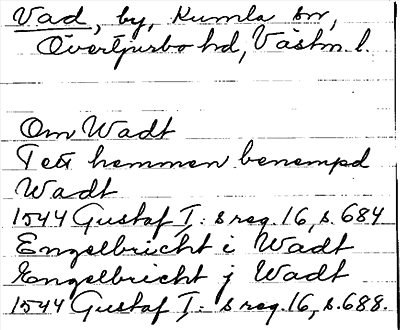 Vad, by, Kumla sn,
Övertjurbo hd, Västm. l.
Om Wadt
Tett hemmen benempd
Wadt
1544 Gustaf I:s reg. 16, s. 684
Engelbricht i Wadt
Engelbricht j Wadt
1544 Gustaf I:s reg. 16, s. 688.